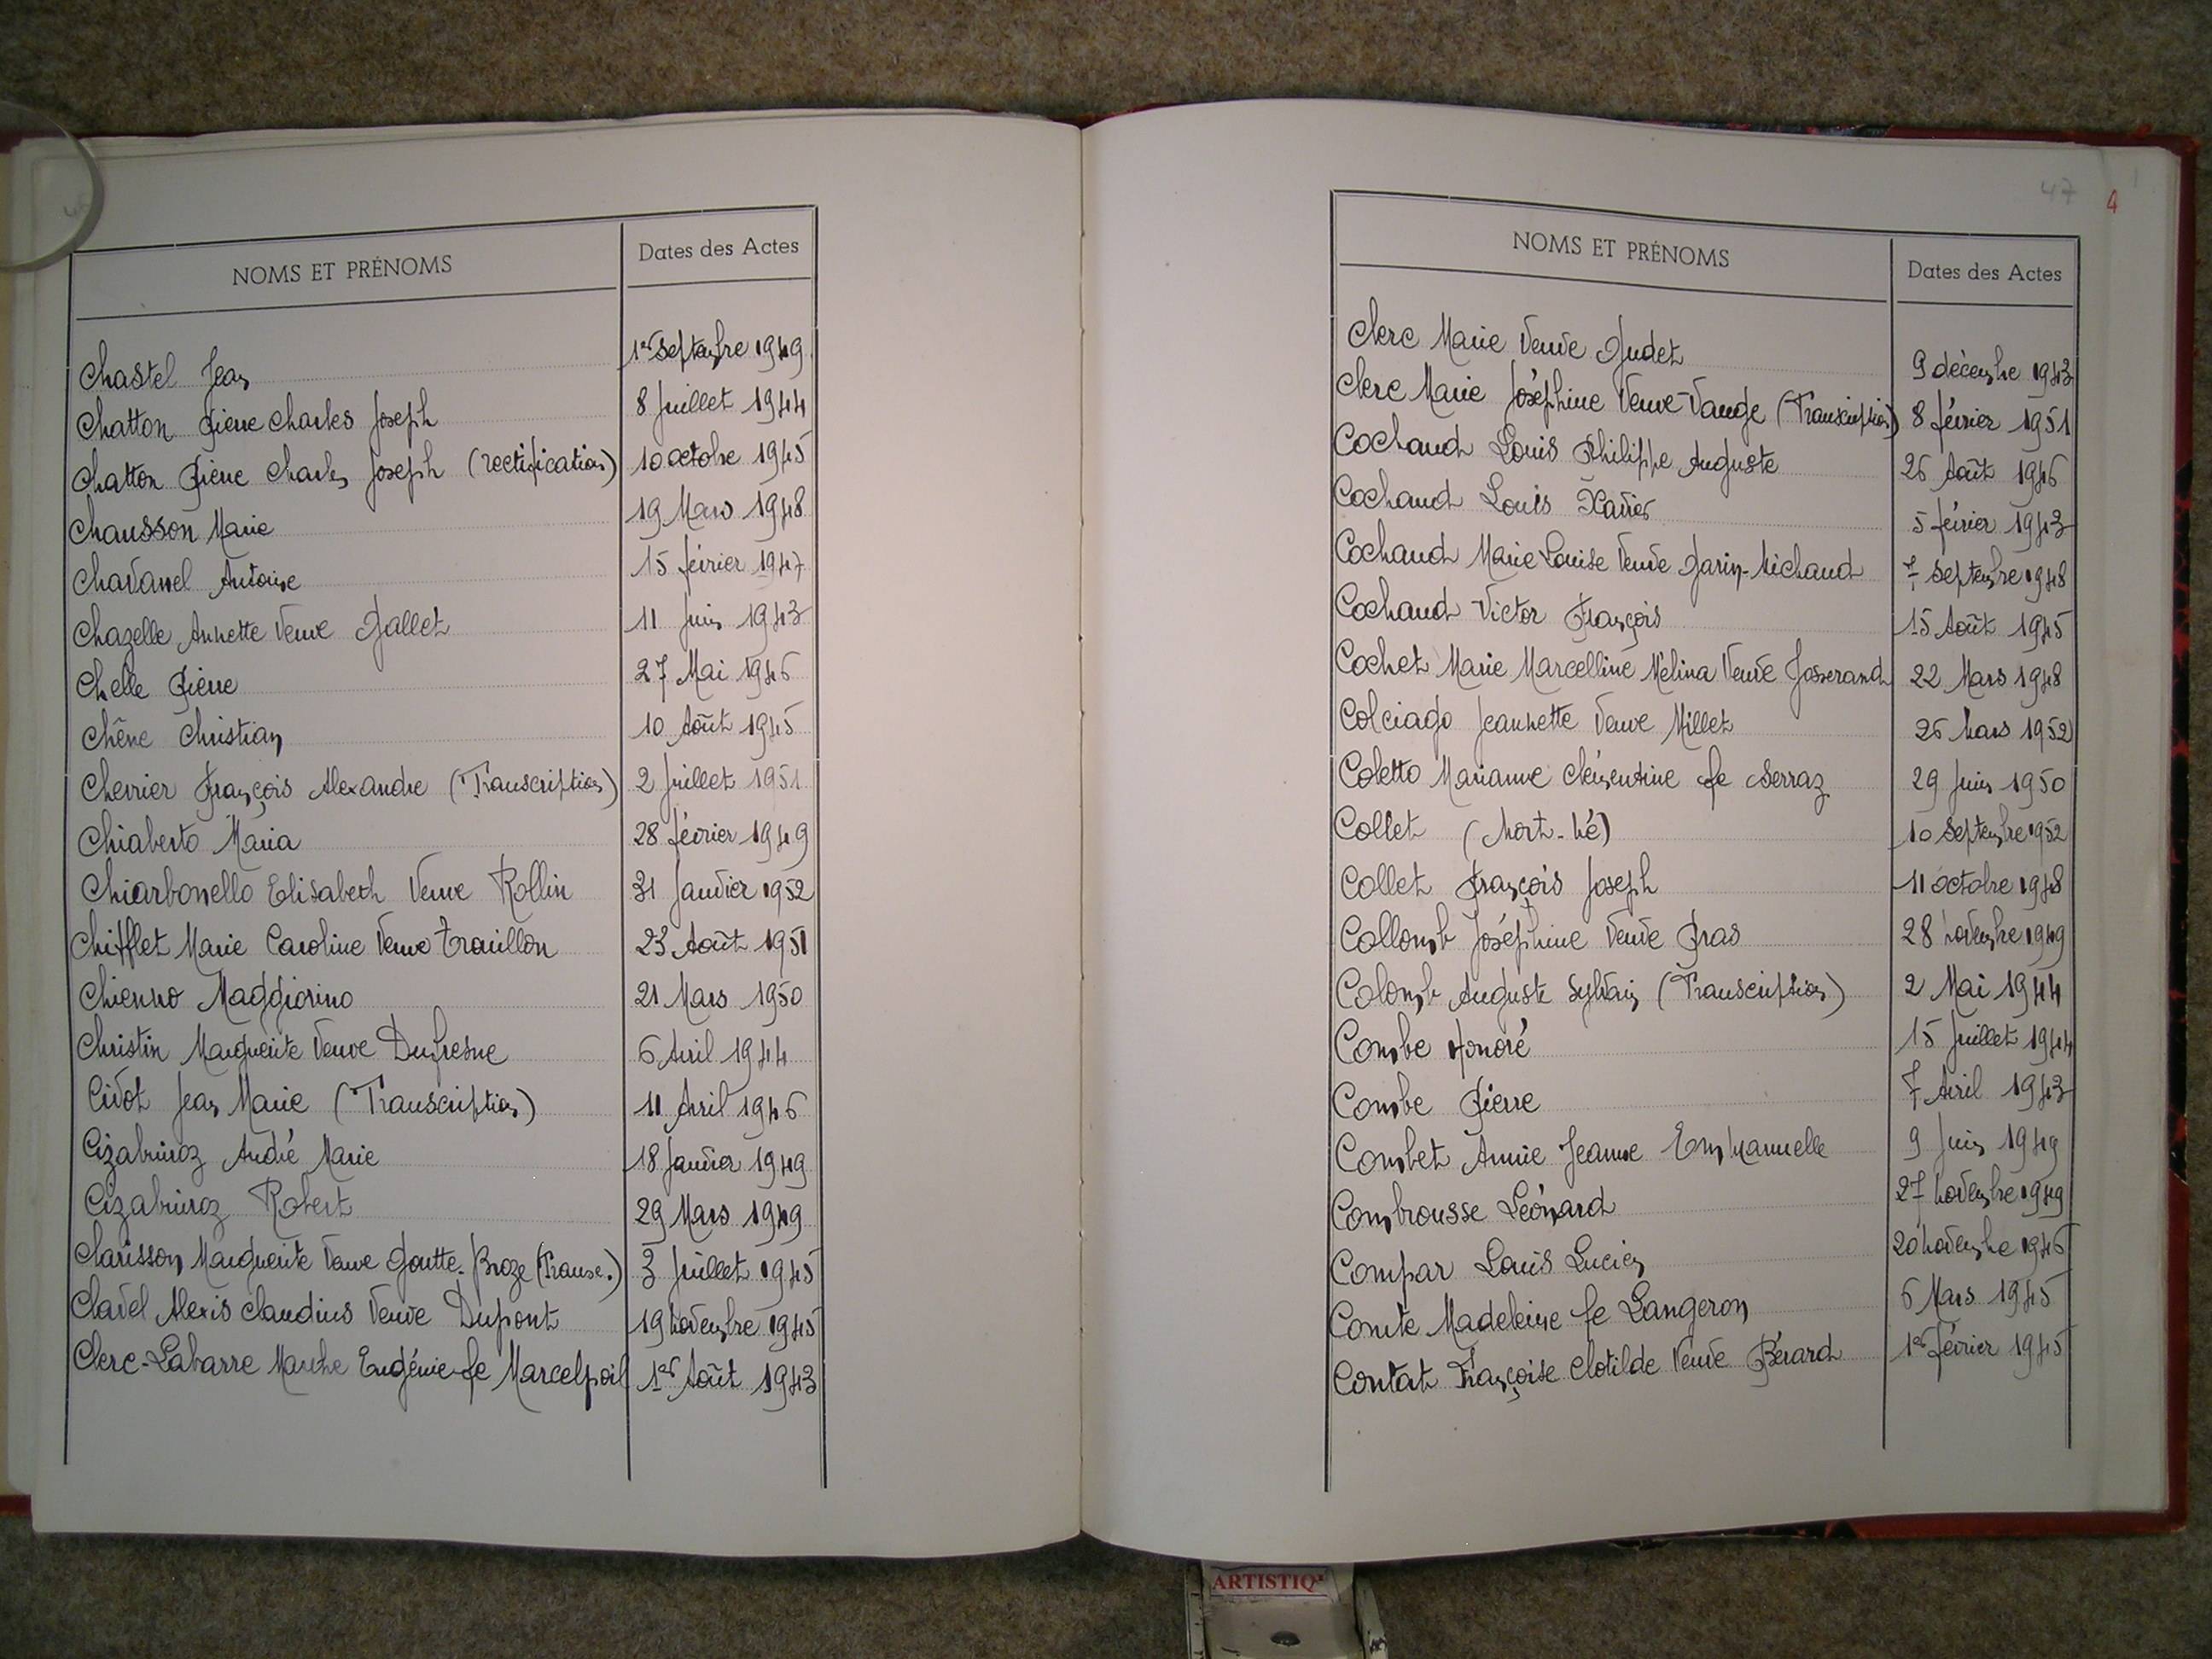 NOMS ET PRÉNOMS Dates des Actes
Chastel Jean 1er Septembre 1949
Chatton Pierre Charles Joseph 8 Juillet 1944
Chatton Pierre Charles Joseph (rectification) 10 octobre 1945
Chausson Marie 19 Mars 1948
Chavanel Antoine 15 février 1947
Chazelle Annette Veuve Gallet 11 Juin 1943
Chelle Pierre 27 Mai 1946
Chêne Christian 10 Août 1945
Chevrier François Alexandre (Transcription) 2 Juillet 1951
Chiaberto Maria 28 février 1949
Chiarbonello Elisabeth Veuve Rollin 31 Janvier 1952
Chifflet Marie Caroline Veuve Trouillon 23 Août 1951
Chienno Maggiorino 21 Mars 1950
Christin Marguerite Veuve Dufresne 6 Avril 1944
Civot Jean Marie (Transcription) 11 Avril 1946
Cizabuiroz André Marie 18 Janvier 1949
Cizabuiroz Robert 29 Mars 1949
Clarisson Marguerite Veuve Goutte-Broze (Transc.) 3 Juillet 1945
Clavel Alexis Claudius Veuve Dupont 19 Novembre 1945
Clerc-Labarre Marthe Eugénie fe Marcelpoil 1er Août 1943
47 4
NOMS ET PRÉNOMS Dates des Actes
Clerc Marie Veuve Gudet 9 décembre 1943
Clerc Marie Joséphine Veuve Vauge (Transcription) 8 février 1951
Cochaud Louis Philippe Auguste 26 Août 1946
Cochaud Louis Xavier 5 février 1943
Cochaud Marie Louise Veuve Garin-Michaud 7 Septembre 1948
Cochaud Victor François 15 Août 1945
Cochet Marie Marcelline Mélina Veuve Josserand 22 Mars 1948
Colciago Jeannette Veuve Millet 26 Mars 1952
Coletto Marianne Clémentine fe Serraz 29 Juin 1950
Collet (Mort-Né) 10 Septembre 1952
Collet François Joseph 11 octobre 1948
Collomb Joséphine Veuve Gras 28 Novembre 1949
Colomb Auguste Sylvain (Transcription) 2 Mai 1944
Combe Honoré 15 Juillet 1944
Combe Pierre 7 Avril 1943
Combet Annie Jeanne Emmanuelle 9 Juin 1949
Combrousse Léonard 27 Novembre 1949
Compar Louis Lucien 20 Novembre 1946
Comte Madeleine fe Langeron 6 Mars 1945
Contat Françoise Clotilde Veuve Bérard 1er février 1945